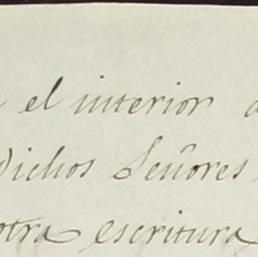 el interior
Dichos Señores
otra escritura